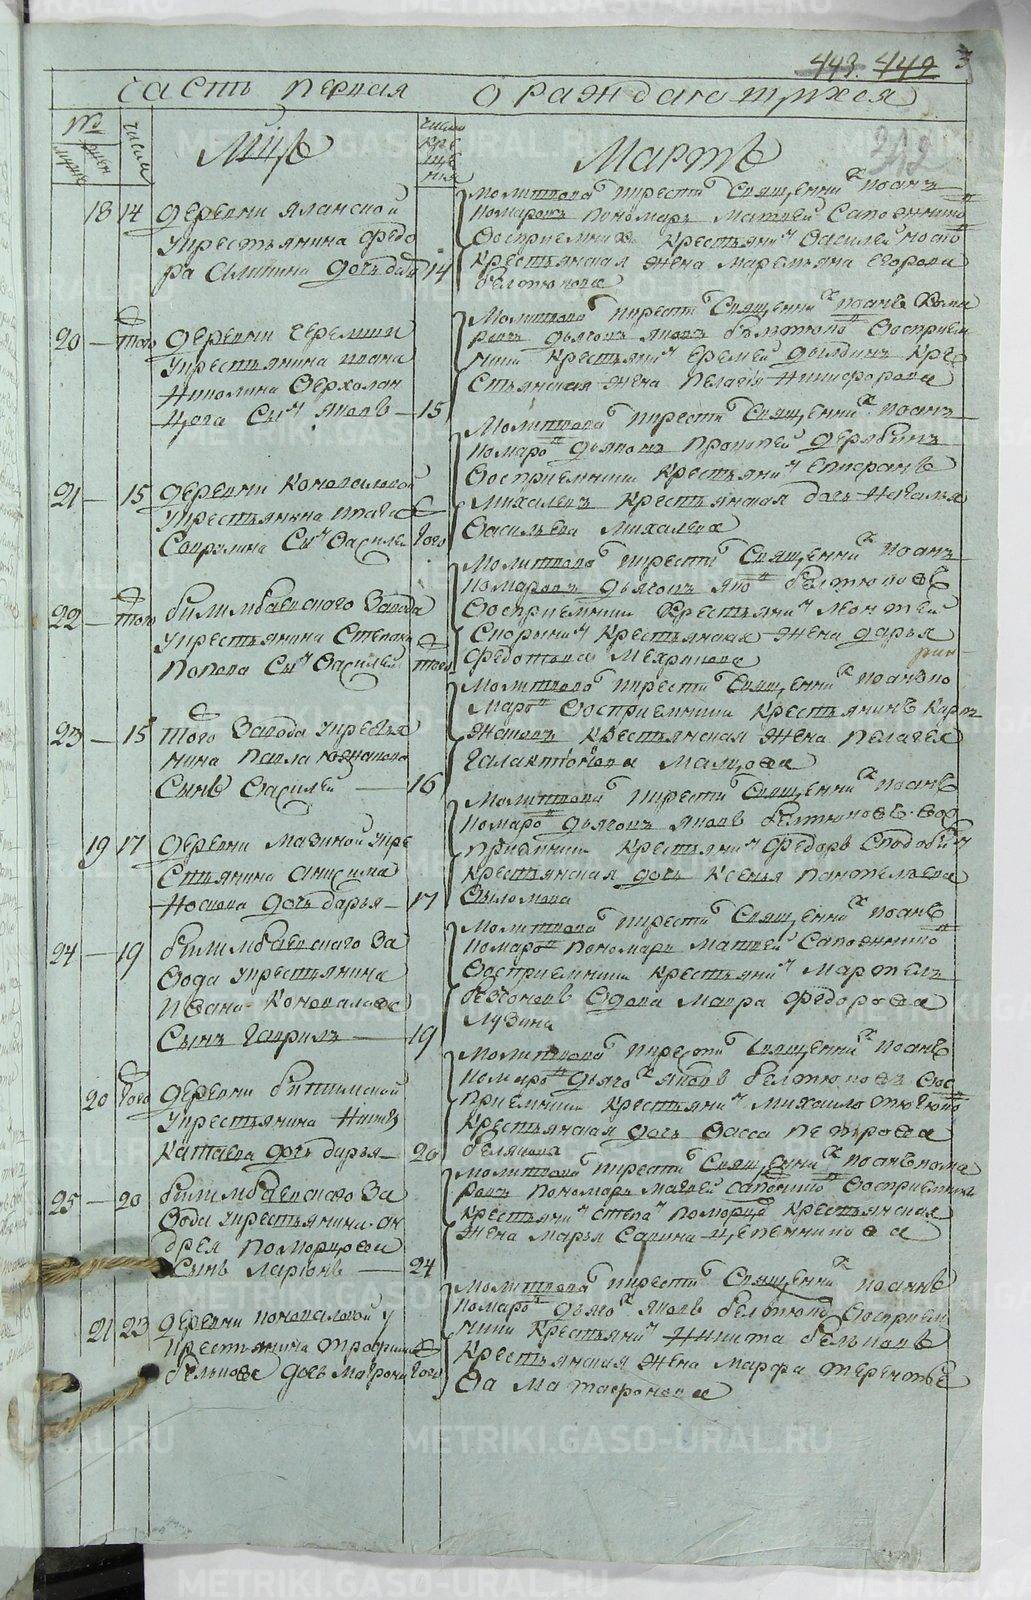 443. 442 3
часть первая о раждающихся
342
№ числ. Мцъ число кре ще нiя Мартъ
муж жен
18 14 деревни Яланской
укрестьянина Федо
ра дочь 14
молитвовал и крестил священник Иоанн
Комаров пономарь Матвей Сапожников
восприемники крестьянин Василей
крестьянская жена Маремьяна Егорова
Белтюкова
20 того деревни Черемши
укрестьянина Ивана
Николина Верхолан
цова сын Яков 15
молитвовал и крестил священник Иоанн Кома
ров дьячок Яков Белтюков восприем
ники крестьянин Еремей крес
стьянская жена Пелагея Никифорова
21 15 деревни Коноваловой
укрестьянина
сын Василей того
молитвовал и крестил священник Иоанн
Комаров дьякон Прокопей Дерябин
восприемники крестьянин
Михалев крестьянская дочь Наталья
Васильева Михалева
22 того Билимбаевского завода
укрестьянина Степана
Попова сын Василей того
молитвовал и крестил священник Иоанн
Комаров дьячок Яков Белтюков
восприемники крестьянин Леонтей
Спорынин крестьянская жена Дарья
Федотова Мехрякова
23 15 того завода укрестья
нина Павла
сын Василей 16
молитвовал и крестил священник Иоанн Ко
маров восприемники крестьянин Карп
крестьянская жена Пелагея
Галактионова Мальцова
19 17 деревни Мазиной укре
стьянина Анисима
Носкова дочь Дарья 17
молитвовал и крестил священник Иоанн
Комаров дьячок Яков Белтюков вос
приемники крестьянин Федор Сподобин
крестьянская дочь Ксенья Пантелеева
Выломова
24 19 Билимбаевского за
вода укрестьянина
Ивана Коновалова
сын Гаврил 19
молитвовал и крестил священник Иоанн
Комаров пономарь Матвей Сапожников
восприемники крестьянин Мартемьян
вдова Мавра Федорова
Лузина
20 того деревни Битимской
укрестьянина Никиты
Катаева дочь Дарья 20
молитвовал и крестил священник Иоанн
Комаров дьячок Яков Белтюков вос
приемники крестьянин Михаило
крестьянская дочь Васса Петрова
Белякова
25 20 Билимбаевского за
вода укрестьянина Ан
дрея Поморцова
сын Ларион 24
молитвовал и крестил священник Иоанн Кома
ров пономарь Матвей Сапожников восприемники
крестьянин Степан Поморцев крестьянская
жена Марья Савина Щепенникова
21 23 деревни Коноваловой у
крестьянина Трофима
Белькова дочь Матрона того
молитвовал и крестил священник Иоанн
Комаров дьячок Яков Белтюков восприем
ники крестьянин Никита Бельков
крестьянская жена Марфа Терентье
ва Матафонова